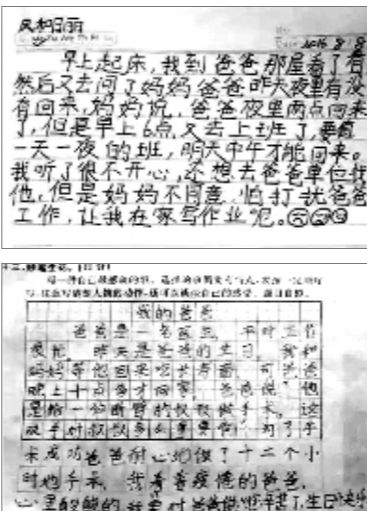 风和日丽
2016 8 8
早上起床,我到爸爸那屋看了看
然后又去问了妈妈爸爸昨天夜里有没
有回来,妈妈说,爸爸夜里两点回来
了,但是早上6点,又去上班了,要看
一天一夜的班,明天中午才能回来。
我听了很不开心,还想去爸爸单位找
他,但是妈妈不同意,怕打扰爸爸
工作,让我在家写作业呢。
我的爸爸
爸爸是一名医生,平时工作
很忙。昨天是爸爸的生日,我和
妈妈等他回来吃长寿面,可爸爸
晚上十点多才回家。爸爸说:他
是给一位断臂的叔叔做手术。这
双手对叔叔多么重要啊!为了手
术成功爸爸耐心地做了十二个小
时地手术。我看着疲倦的爸爸,
心里酸酸的,我对爸爸说:您辛苦了,生日快乐